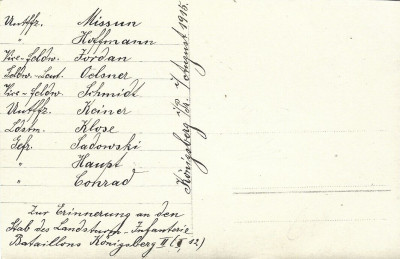 Untffz. Missun
" Hoffmann
Vize-Feldw. Jordan
Feldw.-Leut. Oelsner
Vize-Feldw. Schmidt
Untffz. Keiner
Ldstm. Klose
Gefr. Sadowski
" Haupt
" Conrad
Zur Erinnerung an den
Stab des Landsturm-Infanterie
Bataillons Königsberg II (I, 12)
Königsberg Pr. August 1915.